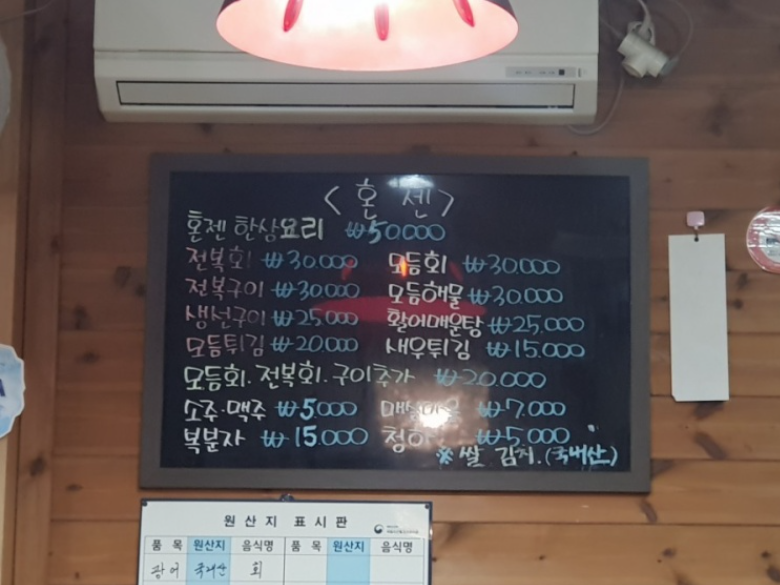 <혼 센>
혼젠 한상요리 ₩50.000
전복회 ₩30.000 모듬회 ₩30.000
전복구이 ₩30.000 모듬해물 ₩30.000
생선구이 ₩25.000 활어매운탕 ₩25.000
모듬튀김 ₩20.000 새우튀김 ₩15.000
모듬회. 전복회. 구이추가 ₩20.000
소주·맥주 ₩5000 ₩7.000
복분자 ₩15.000 청하 ₩5.000
※ 쌀 김치.(국내산)
원산지 표시판
품 목 원산지 음식명 품 목 원산지 음식명
광어 국내산 회